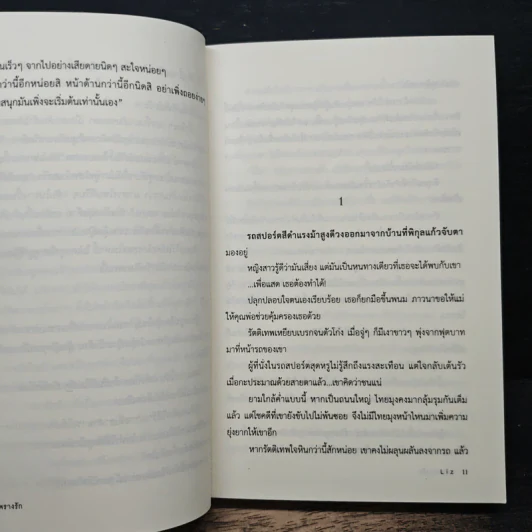 นเร็วๆ จากไปอย่างเสียดายนิดๆ สะใจหน่อยๆ
กว่านี้อีกหน่อยสิ หน้าด้านกว่านี้อีกนิดสิ อย่าเพิ่งถอดง่ายๆ
สนุกมันเพิ่งจะเริ่มต้นเท่านั้นเอง”
ตรางรัก
1
รถสปอร์ตสีดำแรงม้าสูงดิ่งออกมาจากบ้านที่พิกุลแก้วจับตา
มองอยู่
หญิงสาวรู้ดีว่ามันเสี่ยง แต่มันเป็นหนทางเดียวที่เธอจะได้พบกับเขา
...เพื่อแสด เธอต้องทำได้!
ปลุกปลอบใจตนเองเรียบร้อย เธอก็ยกมือขึ้นพนม ภาวนาขอให้แม่
ให้คุณพ่อช่วยคุ้มครองเธอด้วย
รัตติเทพเหยียบเบรกจนตัวโก่ง เมื่อจู่ๆ ก็มีเงาขาวๆ พุ่งจากฟุตบาท
มาที่หน้ารถของเขา
ผู้ที่นั่งในรถสปอร์ตสุดหรูไม่รู้สึกถึงแรงสะเทือน แต่ใจกลับเต้นรัว
เมื่อกะประมาณด้วยสายตาแล้ว...เขาคิดว่าชนแน่
ยามใกล้ค่ำแบบนี้ หากเป็นถนนใหญ่ ไทยมุงคงมากลุ้มรุมกันเต็ม
แล้ว แต่โชคดีที่เขายังขับไปไม่พ้นซอย จึงไม่มีไทยมุงหน้าไหนมาเพิ่มความ
ยุ่งยากให้เขาอีก
หากรัตติเทพใจหินกว่านี้สักหน่อย เขาคงไม่ผลุนผลันลงจากรถ แล้ว
Liz 11